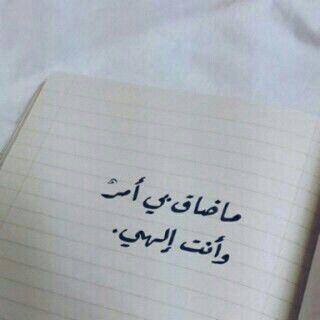 ما ضاق بي أمرٌ
وأنت إلهي.